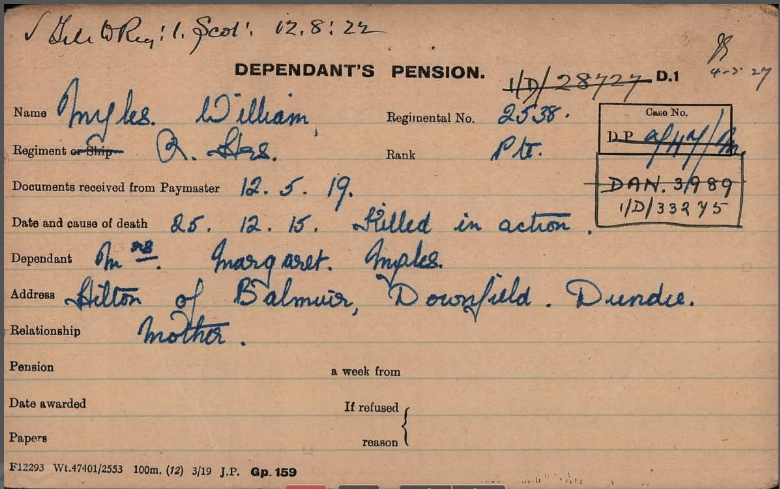 ✓ File to Reg: 1. Scot. 12.8.22
4-5-27
DEPENDANT'S PENSION. 1/D/28727 D.1
Name Myles. William, Regimental No. 2538.
Case No.
Regiment or Ship R. Hrs. Rank Pte.
D.P. 9/47/M.
Documents received from Paymaster 12. 5. 19.
DAN. 3/989
1/D/33275
Date and cause of death 25. 12. 15. Killed in action.
Dependant Mrs. Margaret. Myles.
Address Hilton of Balmuir, Downfield. Dundee.
Relationship Mother.
Pension a week from
Date awarded If refused
Papers reason
F12293 Wt.47401/2553 100m. (12) 3/19 J.P. Gp. 159